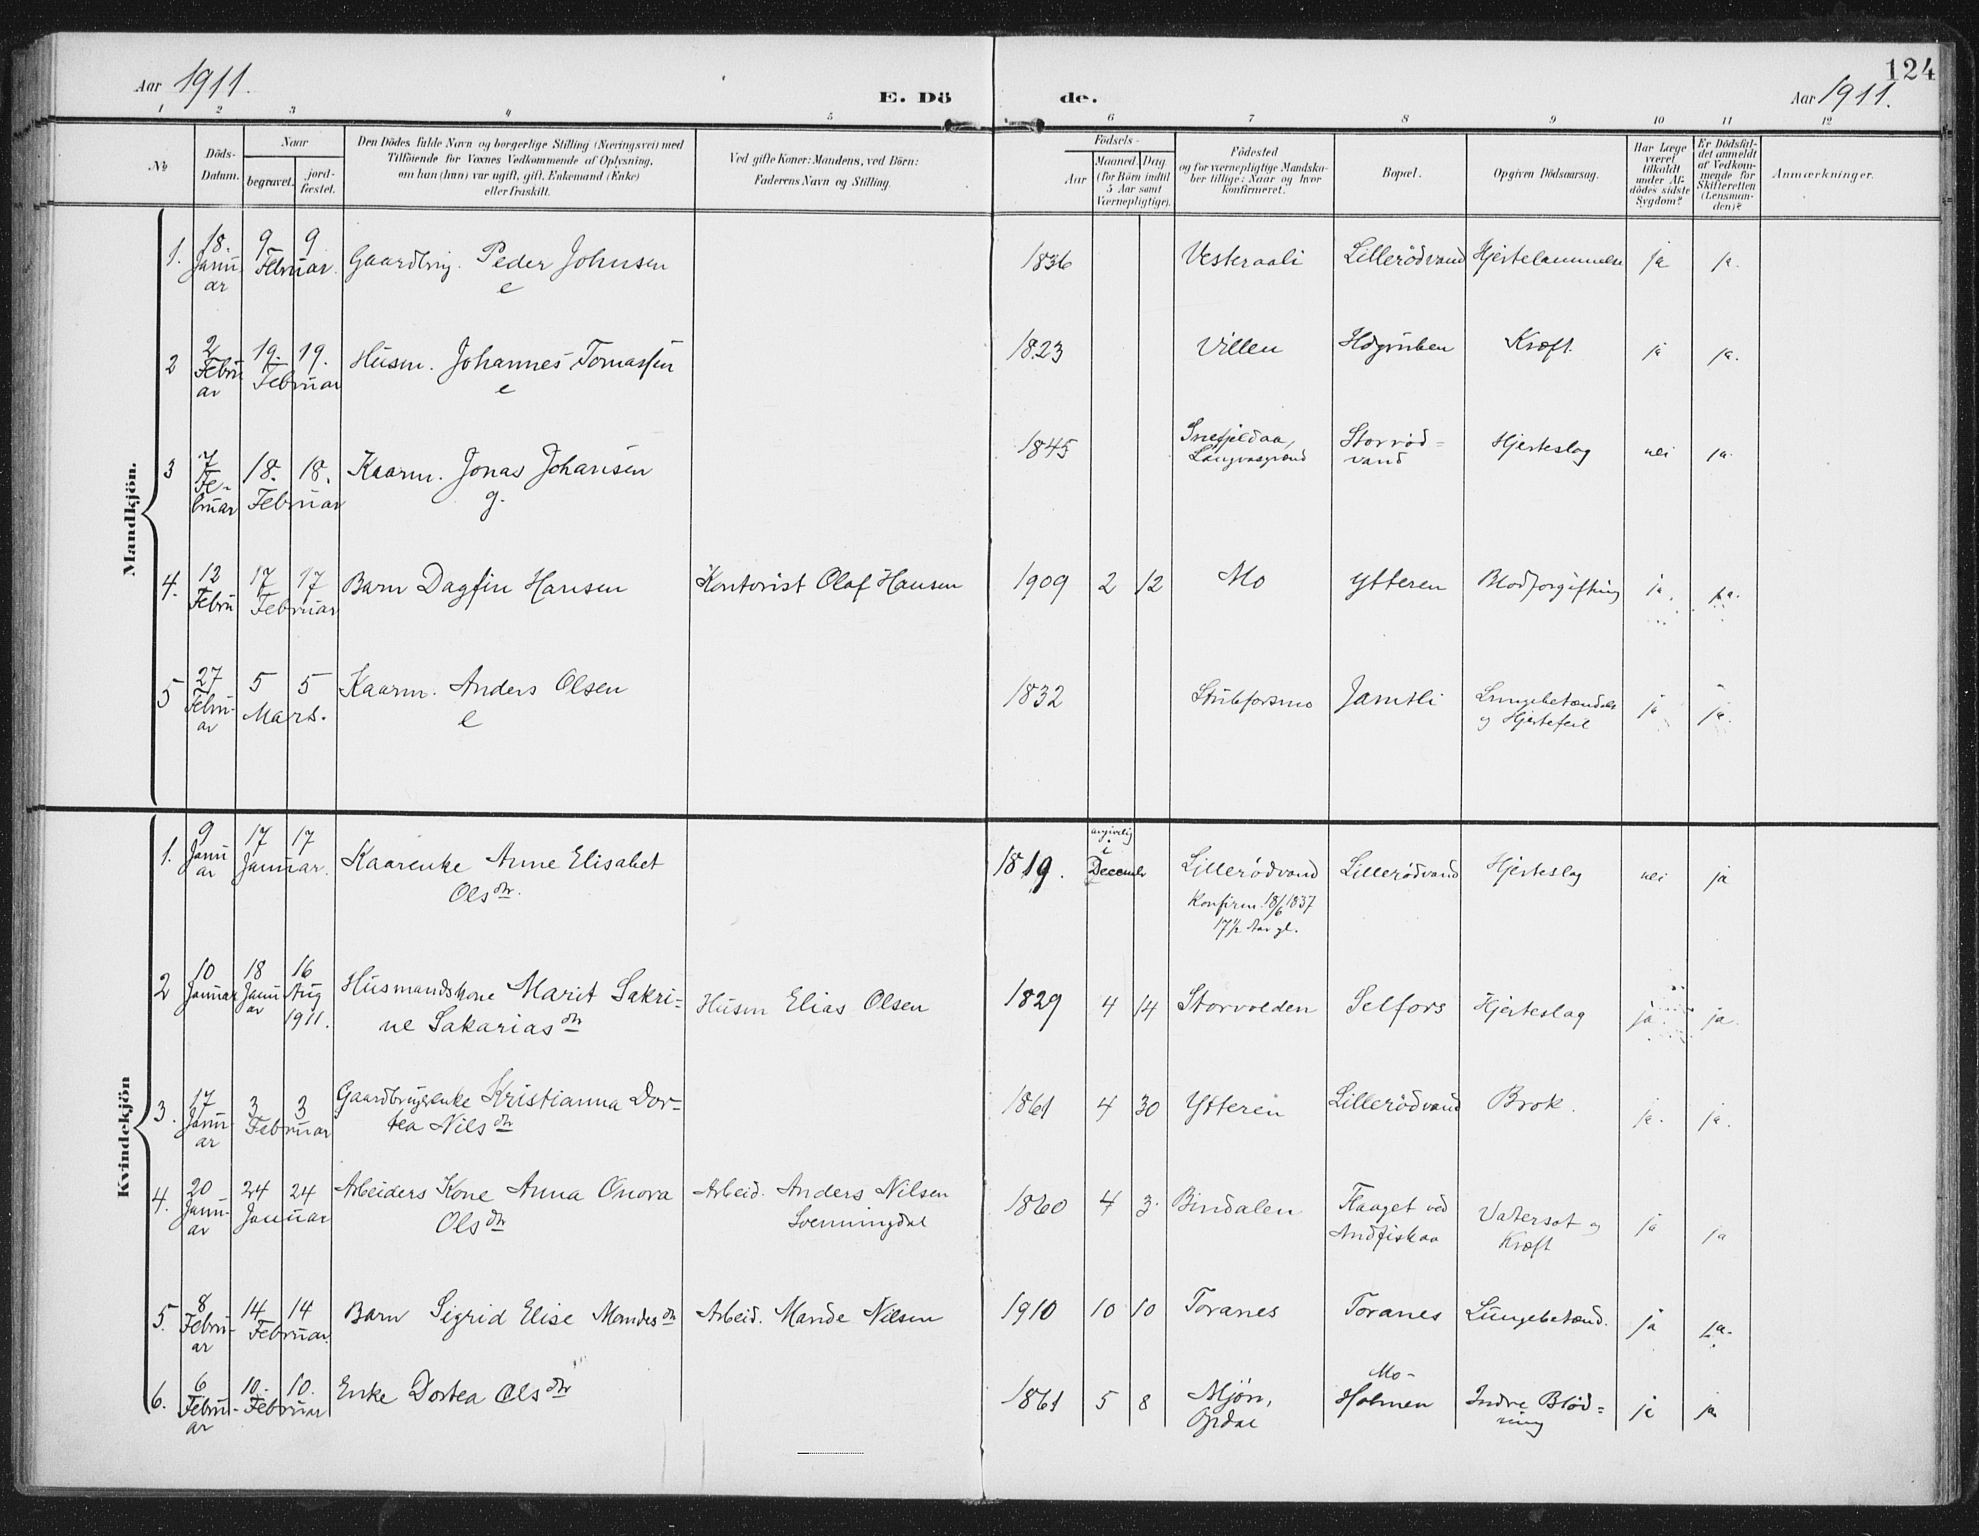 124
Aar 1911.
E. Döde.
Aar 1911.
1 2 3 4 5 6 7 8 9 10 11 12
No
Döds-Datum.
Naar
begravet.
jord-fæstet.
Den Dödes fulde Navn og borgerlige Stilling (Næringsvei) med
Tilföiende for Voxnes Vedkommende af Oplysning,
om han (hun) var ugift, gift, Enkemand (Enke)
eller fraskilt.
Ved gifte Koner: Mandens, ved Börn:
Faderens Navn og Stilling.
Födsels-
Aar
Maaned.
Dag.
(for Börn indtil
5 Aar samt
Værnepligtige).
Födested
og for værnepligtige Mandska-
ber tillige: Naar og hvor
konfirmeret.
Bopæl.
Opgiven Dödsaarsag.
Har Læge
været
tilkaldt
under Af-
dödes sidste
Sygdom?
Er Dödsfal-
det anmeldt
af Vedkom-
mende for
Skifteretten
(Lensman-
den)?
Anmærkninger.
Mandkjön.
1. 18. Januar 9 9 Februar. Gaardbrug. Peder Johnsen e 1836 Vesteraali Lillerödvand Hjertelammelse ja ja.
2 2 Februar 19. 19. Februar Husm. Johannes Tomassen e 1823 Villen Högruben Kræft. ja ja.
3 7 Februar 18. 18. Februar Kaarm. Jonas Johansen g. 1845 Snefjeldaa, Langvasgrend Storröd=vand Hjerteslag nei ja.
4. 12 Febru 17 17 Februar Barn Dagfin Hansen Kontorist Olaf Hansen 1909 2 12 Mo Ytteren Blodforgiftning ja. ja.
5 27 Februar 5 5 Mars. Kaarm. Anders Olsen e 1832 Stubforsmo Jamtli Lungebetændelse og Hjertefeil ja ja.
Kvindekjön
1. 9 Januar 17 17 Januar. Kaarenke Anne Elisabet Olsdtr. 1819. angivelig i December Lillerödvand Konfirm. 18/6 1837 17½ Aar gl. Lillerödvand Hjerteslag nei ja
2 10 Januar 18 Januar 16 Aug 1911. Husmandskone Marit Sakri=ne Sakariasdtr Husm Elias Olsen 1829 4 14 Storvolden Selfors Hjerteslag ja. ja.
3. 17 Januar 3 3 Februar Gaardbrugerenke Kristianna Dor=tea Nilsdtr 1861 4 30 Ytteren Lillerödvand Brok. ja. ja.
4. 20 Januar 24 24 Januar Arbeiders Kone Anna Onora Olsdtr Arbeid. Anders Nilsen Svenningdal 1860 4 3. Bindalen Flaaget ved Andfiskaa Vatersot og Kræft ja ja
5. 8 Februar 14 14 Februar. Barn Sigrid Elise Mandesdtr Arbeid. Mande Nilsen 1910 10 10 Toranes Toranes Lungebetænd. ja ja.
6. 6 Februar 10. 10. Februar Enke Dortea Olsdtr 1861 5 8 Mjön, Opdal Mo-Holmen Indre Blöd=ning ja ja